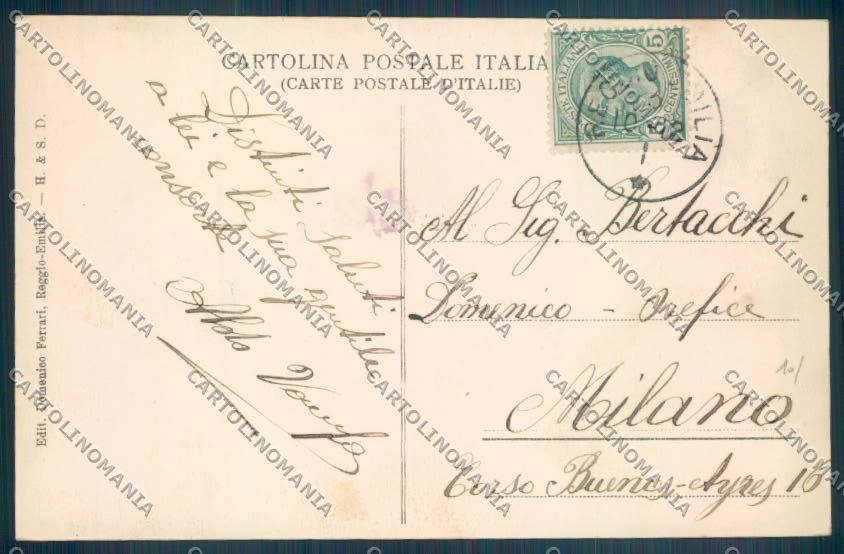 CARTOLINA POSTALE ITALIA
(CARTE POSTALE D'ITALIE)
Distinti saluti
a lei e la sua gentile
consorte
Aldo
Al Sig. Bertacchi
Domenico - Orefice
Milano
Corso Buenos-Ayres 16
Edit. Domenico Ferrari, Reggio-Emilia. — H. & S. D.
POSTE ITALIANE
5
CENTESIMI
EMILIA
CARTOLINOMANIA